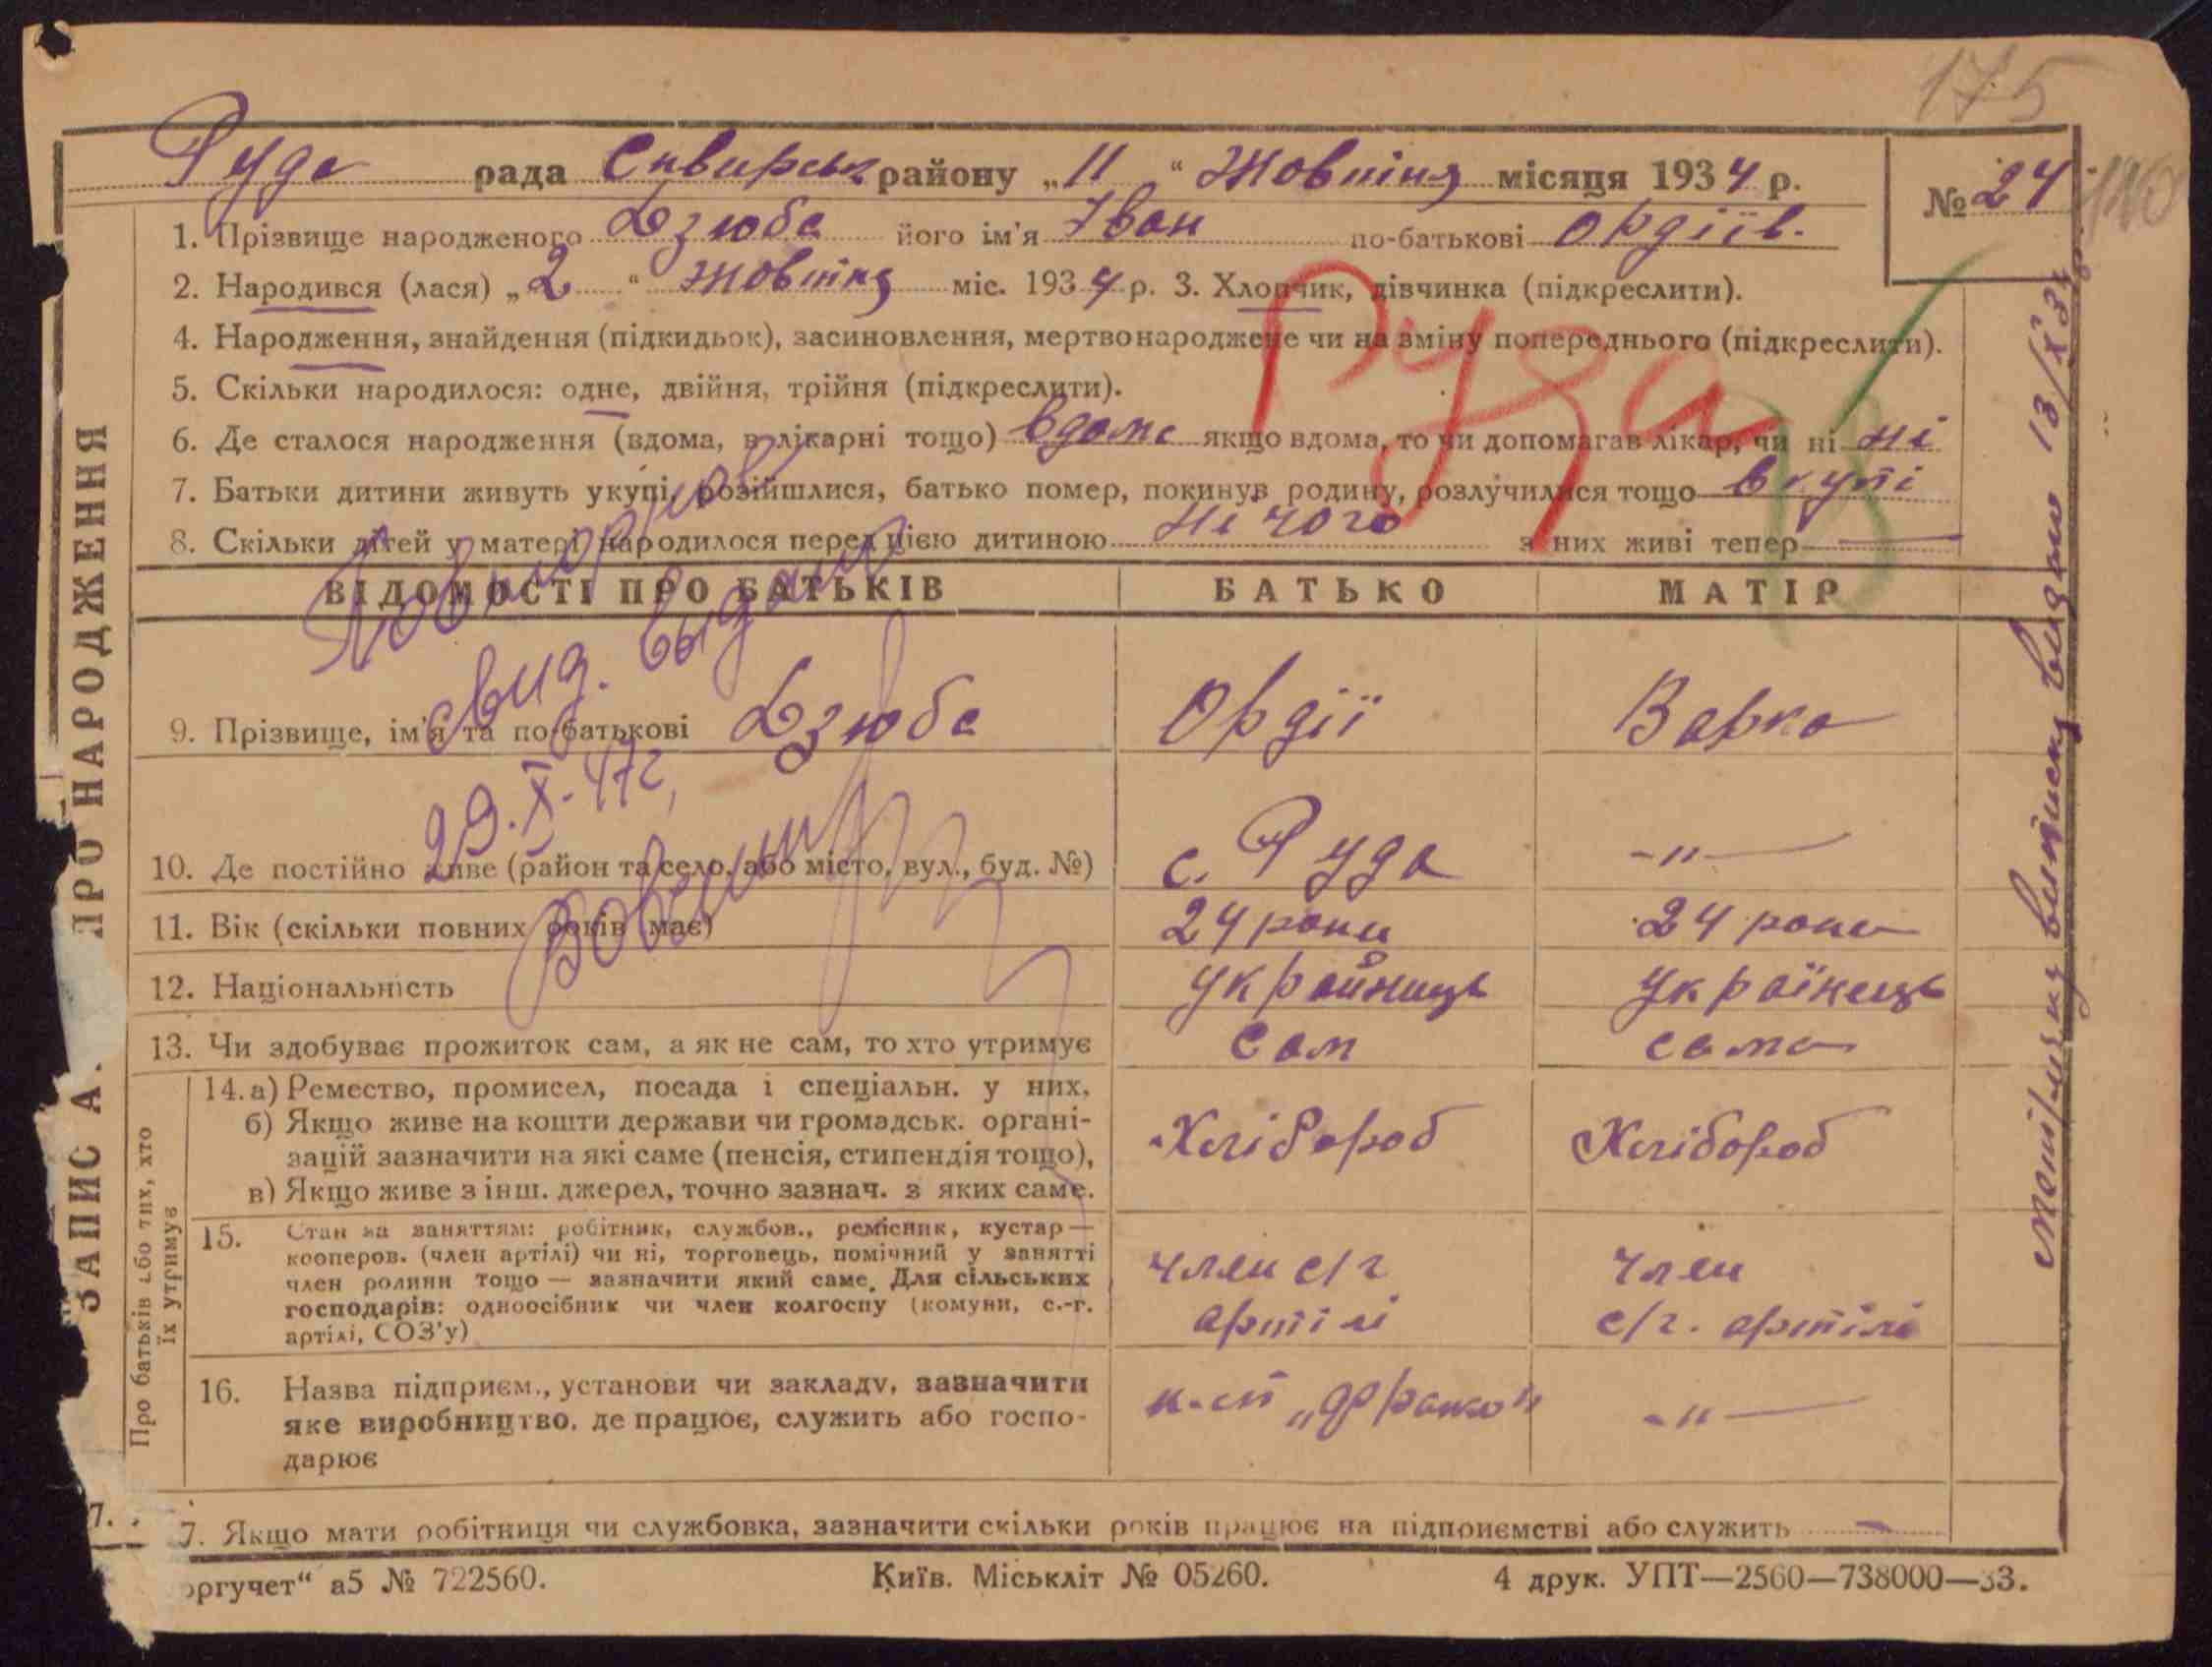 175
110
Руда рада Сквирськ району „11“ Жовтня місяця 1934 р.
№ 24
1. Прізвище народженого Дзюба його ім'я Іван по-батькові Ордіїв.
2. Народився (лася) „2“ Жовтня міс. 1934 р. 3. Хлопчик, дівчинка (підкреслити).
4. Народження, знайдення (підкидьок), засиновлення, мертвонароджене чи на зміну попереднього (підкреслити).
5. Скільки народилося: одне, двійня, трійня (підкреслити).
6. Де сталося народження (вдома, в лікарні тощо) вдома якщо вдома, то чи допомагав лікар, чи ні ні
7. Батьки дитини живуть укупі, розійшлися, батько помер, покинув родину, розлучилися тощо вкупі
8. Скільки дітей у матері народилося перед цією дитиною нічого з них живі тепер —
Руда
ВІДОМОСТІ ПРО БАТЬКІВ БАТЬКО МАТІР
9. Прізвище, ім'я та по-батькові Дзюба Ордії Варка
10. Де постійно живе (район та село, або місто, вул., буд. №) с. Руда -"-
11. Вік (скільки повних років має) 24 роки 24 роки
12. Національність українць українець
13. Чи здобуває прожиток сам, а як не сам, то хто утримує Сам сама
14. а) Ремество, промисел, посада і спеціальн. у них,
б) Якщо живе на кошти держави чи громадськ. органі-
зацій зазначити на які саме (пенсія, стипендія тощо),
в) Якщо живе з інш. джерел, точно зазнач. з яких саме.
Хлібороб Хлібороб
15. Стан за заняттям: робітник, службов., ремісник, кустар —
кооперов. (член артілі) чи ні, торговець, помічний у занятті
член родини тощо — зазначити який саме. Для сільських
господарів: одноосібник чи член колгоспу (комуни, с.-г.
артілі, СОЗ'у)
член с/г член
артілі с/г. артілі
16. Назва підприєм., установи чи закладу, зазначити
яке виробництво, де працює, служить або госпо-
дарює
„Франко“ -"-
7. 7. Якщо мати робітниця чи службовка, зазначити скільки років працює на підприємстві або служить —
оргучет“ а5 № 722560. Київ. Міськліт № 05260. 4 друк. УПТ—2560—738000—33.
ЗАПИС А. ПРО НАРОДЖЕННЯ
Про батьків або тих, хто
їх утримує
Повторное
свид. выдано
29.X.47г,
виписку видано 13/X 34